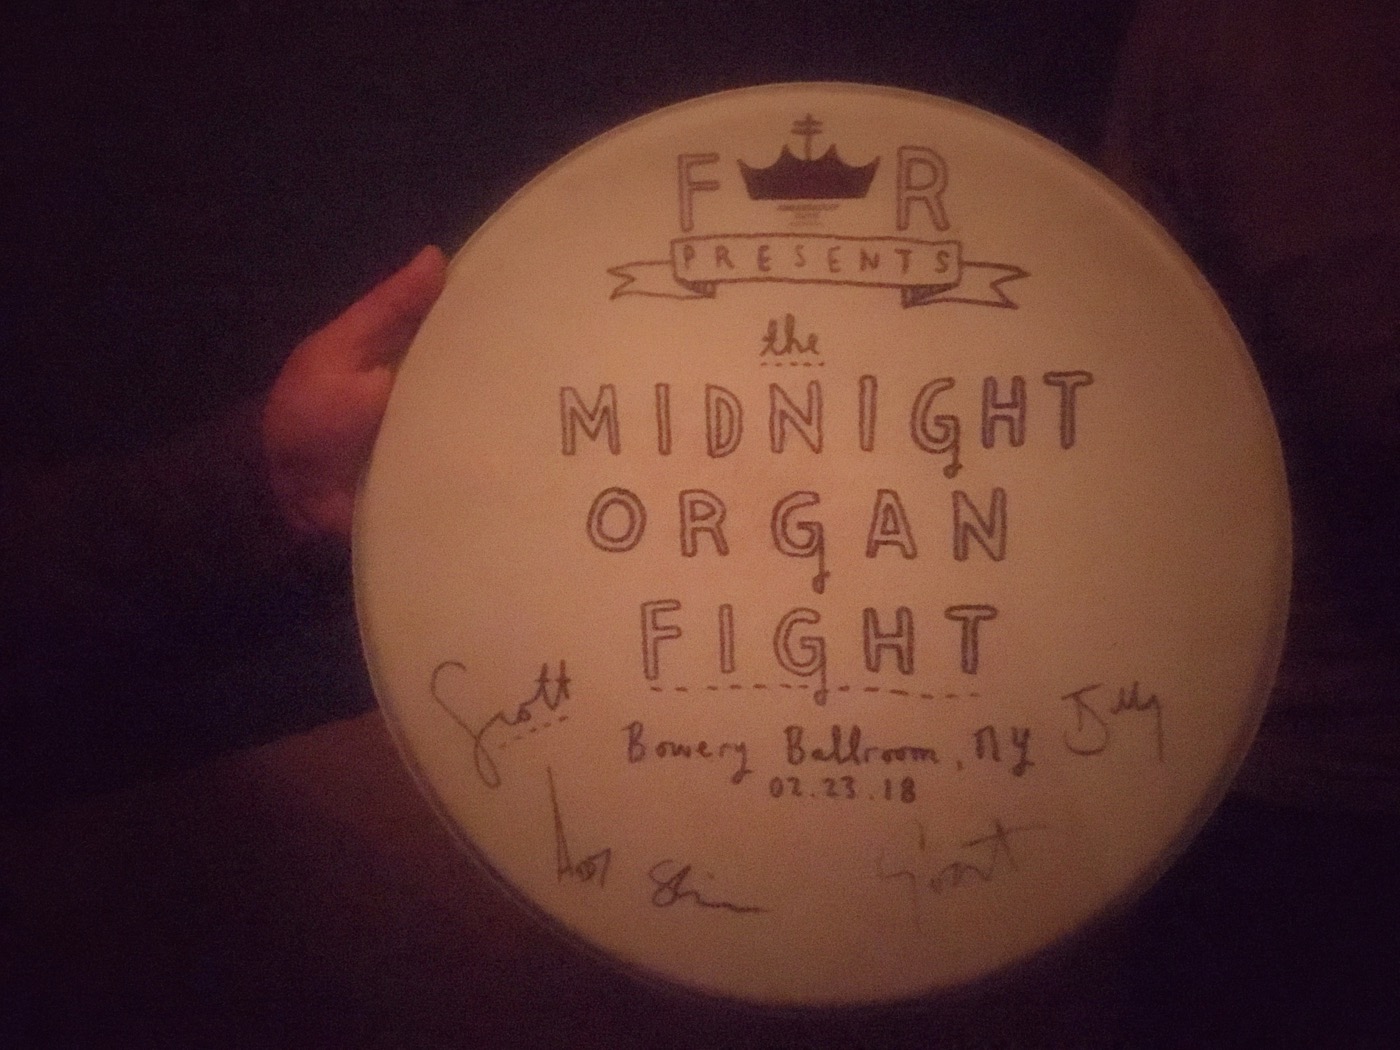 F R
PRESENTS
the
MIDNIGHT
ORGAN
FIGHT
Scott
Bowery Ballroom, NY
Billy
02.23.18
Grant